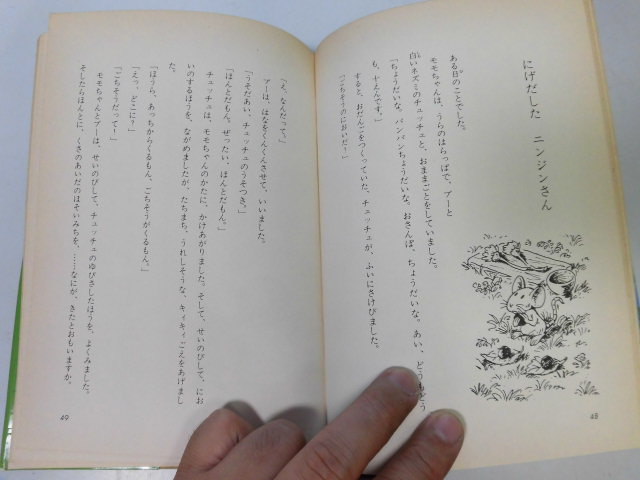 にげだした ニンジンさん
ある日のことでした。
モモちゃんは、うらのはらっぱで、アーと
白いネズミのチュッチュと、おままごとをしていました。
「ちょうだいな。パンパンちょうだいな。おさんぽ、ちょうだいな。あい、どうもどう
も、十えんです。」
すると、おだんごをつくっていた、チュッチュが、ふいにさけびました。
「ごちそうのにおいだ!」
48
「え、なんだって。」
アーは、はなをくんくんさせて、いいました。
「うそだあい、チュッチュのうそつき。」
「ほんとだもん。ぜったい、ほんとだもん。」
チュッチュは、モモちゃんのかたに、かけあがりました。そして、せいのびして、にお
いのするほうを、ながめましたが、たちまち、うれしそうな、キィキィごえをあげまし
た。
「ほうら、あっちからくるもん、ごちそうがくるもん。」
「えっ、どこに?」
「ごちそうだって!」
モモちゃんとアーは、せいのびして、チュッチュのゆびさしたほうを、よくみました。
そしたらほんとに、くさのあいだのほそいみちを、……なにが、きたとおもいますか。
49